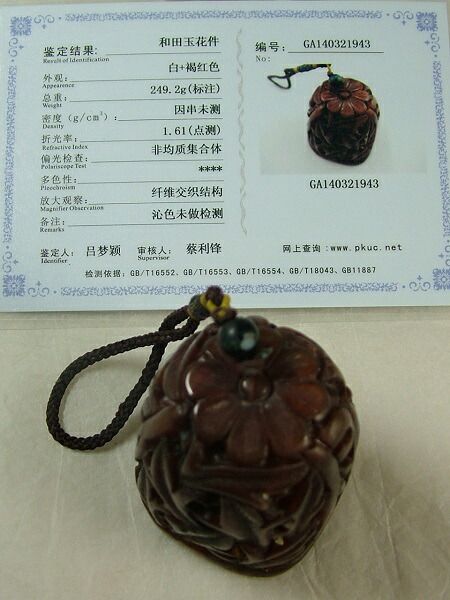 鉴定结果: 和田玉花件
Result of Identification
外观: 白+褐红色
Appearence
总重: 249.2g(标注)
Weight
密度(g/cm³): 因串未测
Density
折光率: 1.61(点测)
Refractive Index
偏光检查: 非均质集合体
Polariscope Test
多色性: ****
Pleochroism
放大观察: 纤维交织结构
Magnifier Observation
备注: 沁色未做检测
Remarks
鉴定人: 吕梦颖 审核人: 蔡利锋
Identifier Supervisor
编号: GA140321943
No:
GA140321943
网上查询:www.pkuc.net
检测依据: GB/T16552、GB/T16553、GB/T16554、GB/T18043、GB11887